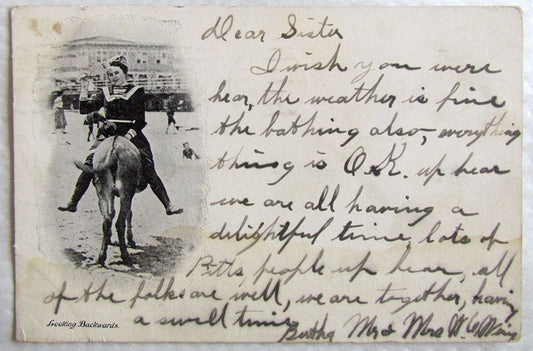 Dear Sister
I wish you were
hear, the weather is fine
the bathing also, everything
thing is O.K. up hear
we are all having a
delightful time, lots of
Pitts, people up hear, all
of the folks are well, we are together, having
a swell time
Bertha Mr & Mrs W. C.
Looking Backwards.